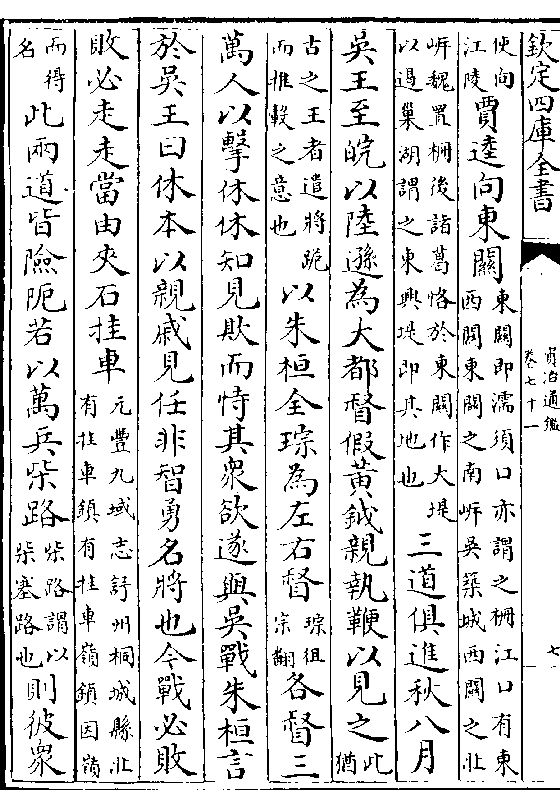 欽定四庫全書
資治通鑑
卷七十一
七
使向江陵賈逵向東關東關即濡須口亦謂之柵江口有東西關東關之南岍吳築城西關之北
岍魏置柵後諸葛恪於東關作大堤以遏巢湖謂之東興堤即其地也三道俱進秋八月
吳王至皖以陸遜為大都督假黃鉞親執鞭以見之此猶
古之王者遣將跪而推轂之意也以朱桓全琮為左右督琮徂宗翻各督三
萬人以擊休休知見欺而恃其衆欲遂與吳戰朱桓言
於吳王曰休本以親戚見任非智勇名將也今戰必敗
敗必走走當由夾石挂車元豐九域志舒州桐城縣北有挂車鎮有挂車嶺鎮因嶺
而得名此兩道皆險阨若以萬兵柴路柴路謂以柴塞路也則彼衆